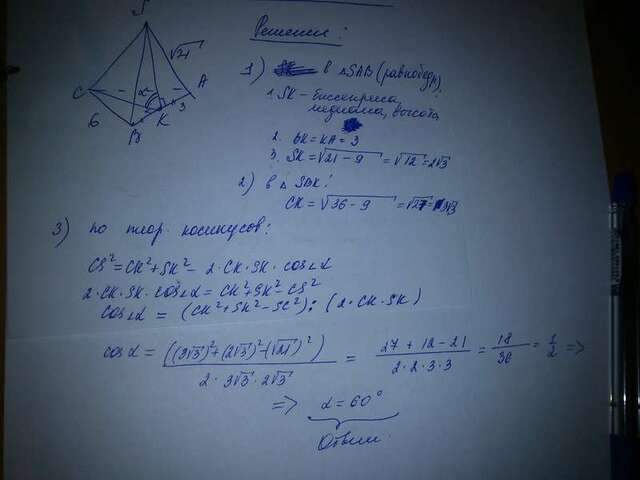 Решение:
S
√21
C
A
α
6
3
B
K
1) в △SAB (равнобедр)
1. SK - биссектриса,
медиана, высота
2. BK = KA = 3
3. SK = √21 - 9 = √12 = 2√3
2) в △ SBK:
CK = √36 - 9 = √27 = 3√3
3) по теор. косинусов:
CS² = CK² + SK² - 2·CK·SK·cos∠α
2·CK·SK·cos∠α = CK² + SK² - CS²
cos∠α = (CK² + SK² - SC²) : (2·CK·SK)
cosα = ((3√3)² + (2√3)² - (√21)²) / 2·3√3·2√3 = 27 + 12 - 21 / 2·2·3·3 = 18 / 36 = 1 / 2 =>
=> α = 60°
Ответ